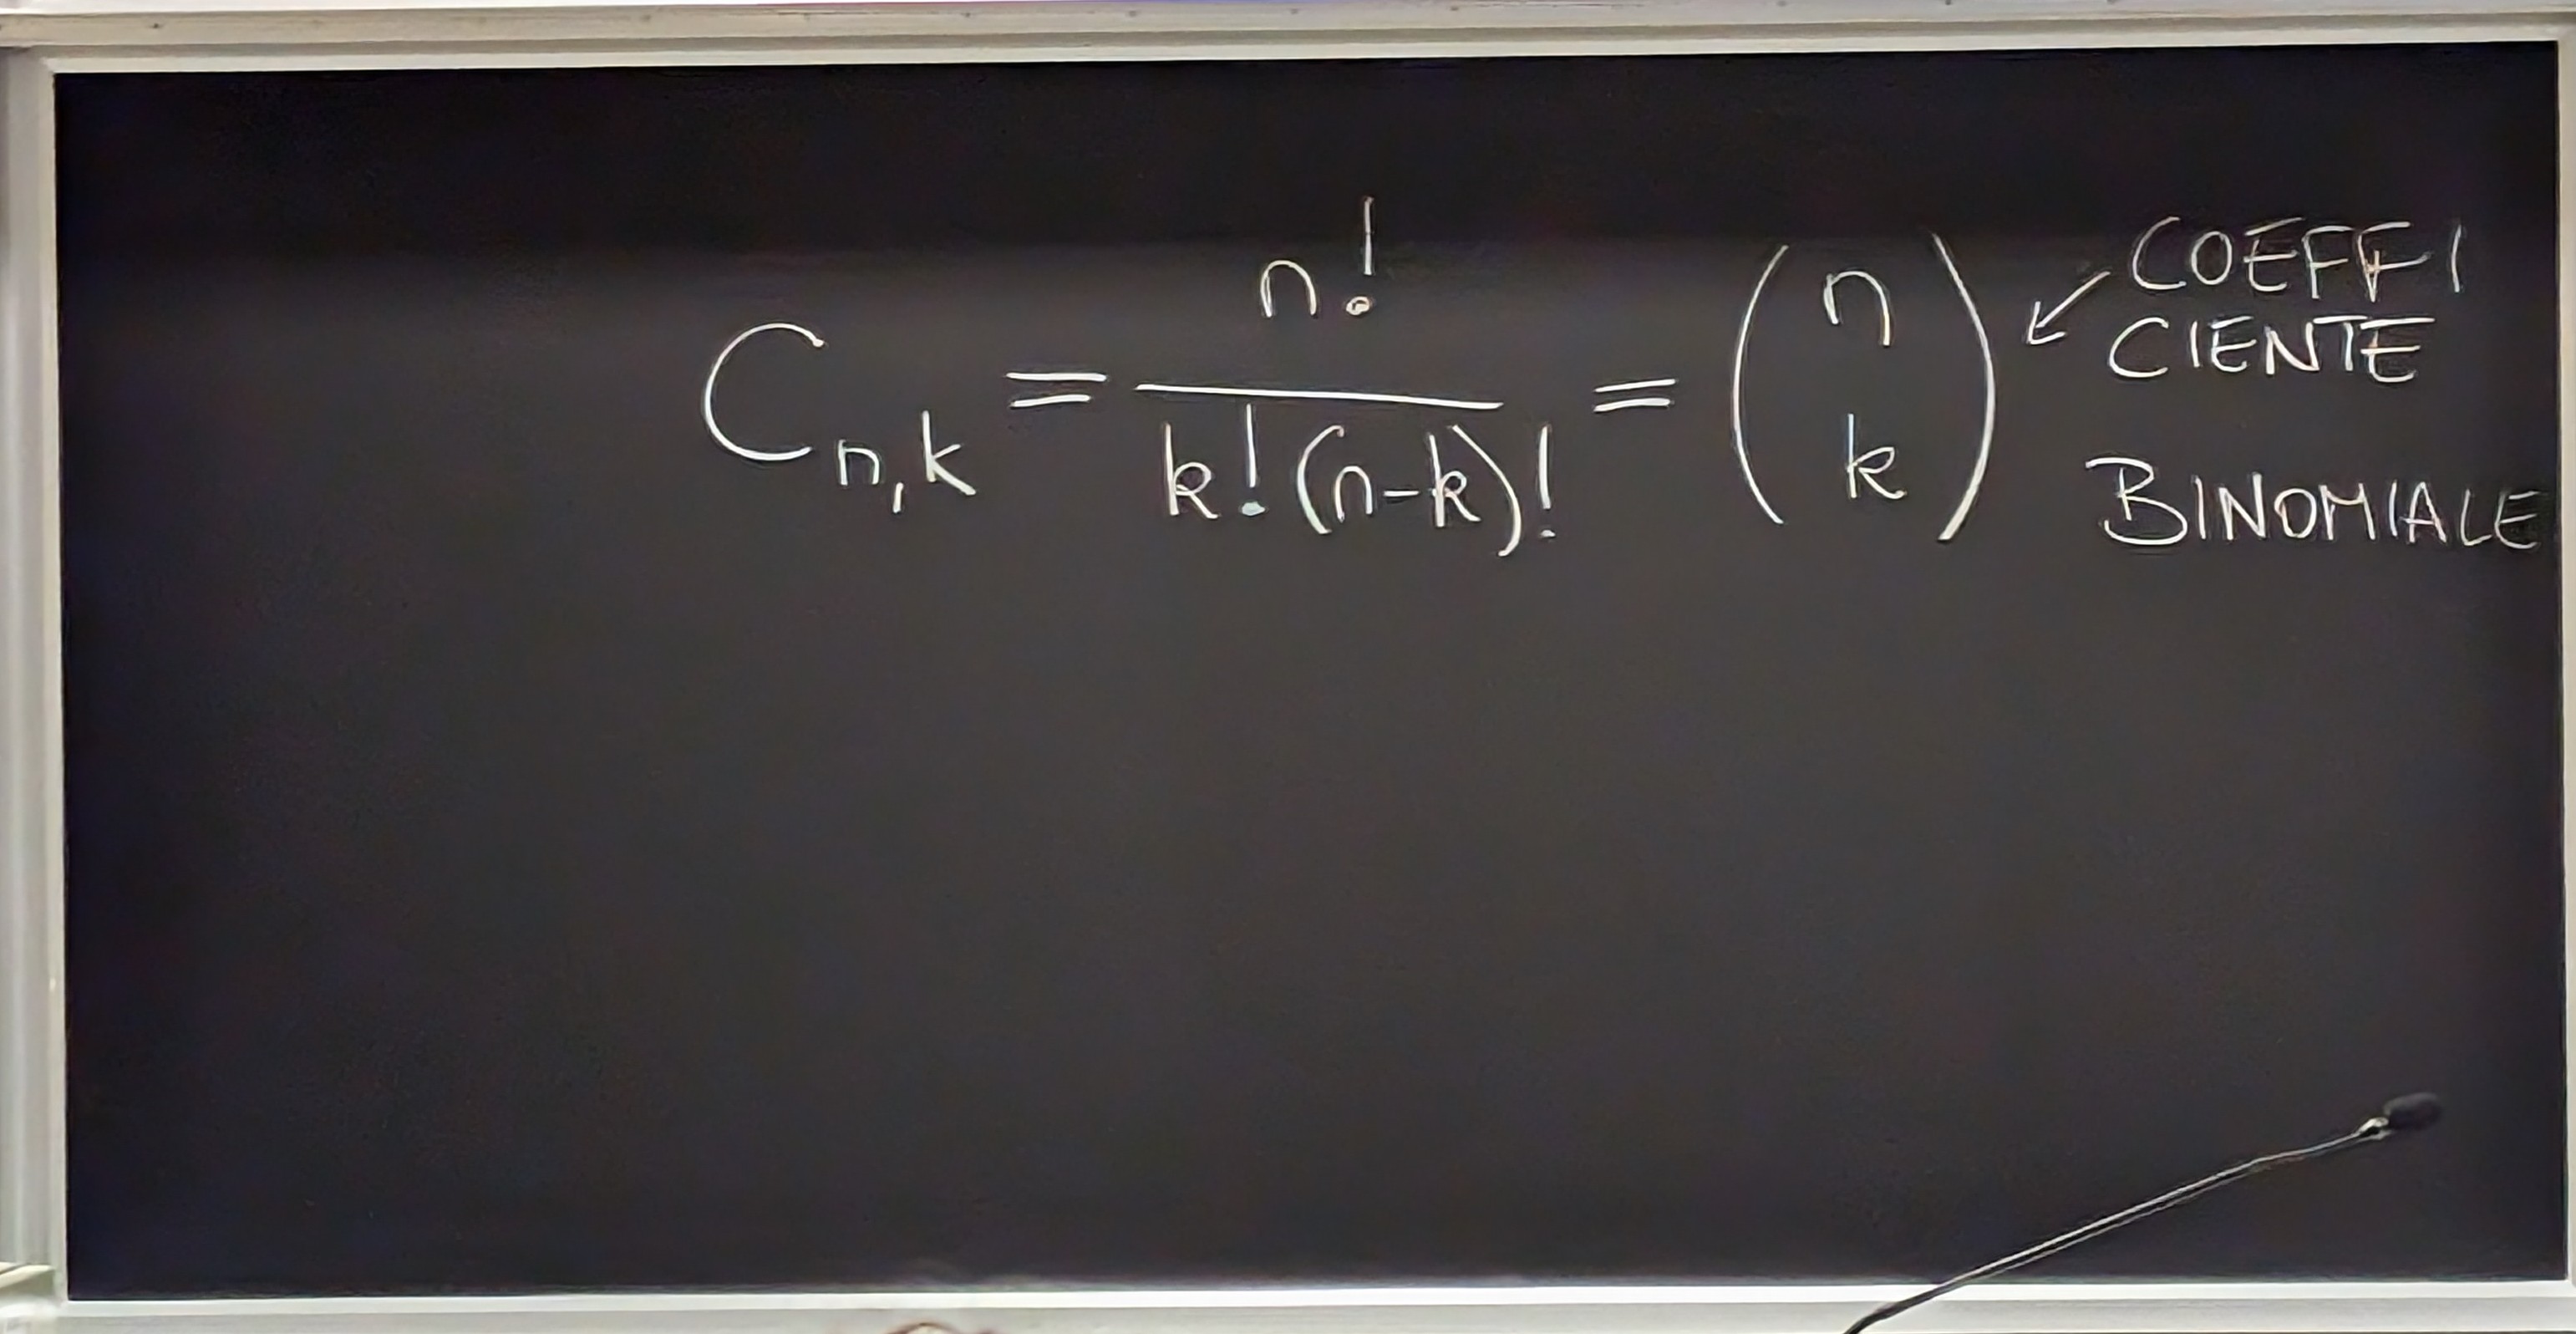 C_{n,k} = \frac{n!}{k!(n-k)!} = \binom{n}{k}
↙ COEFFI
CIENTE
BINOMIALE